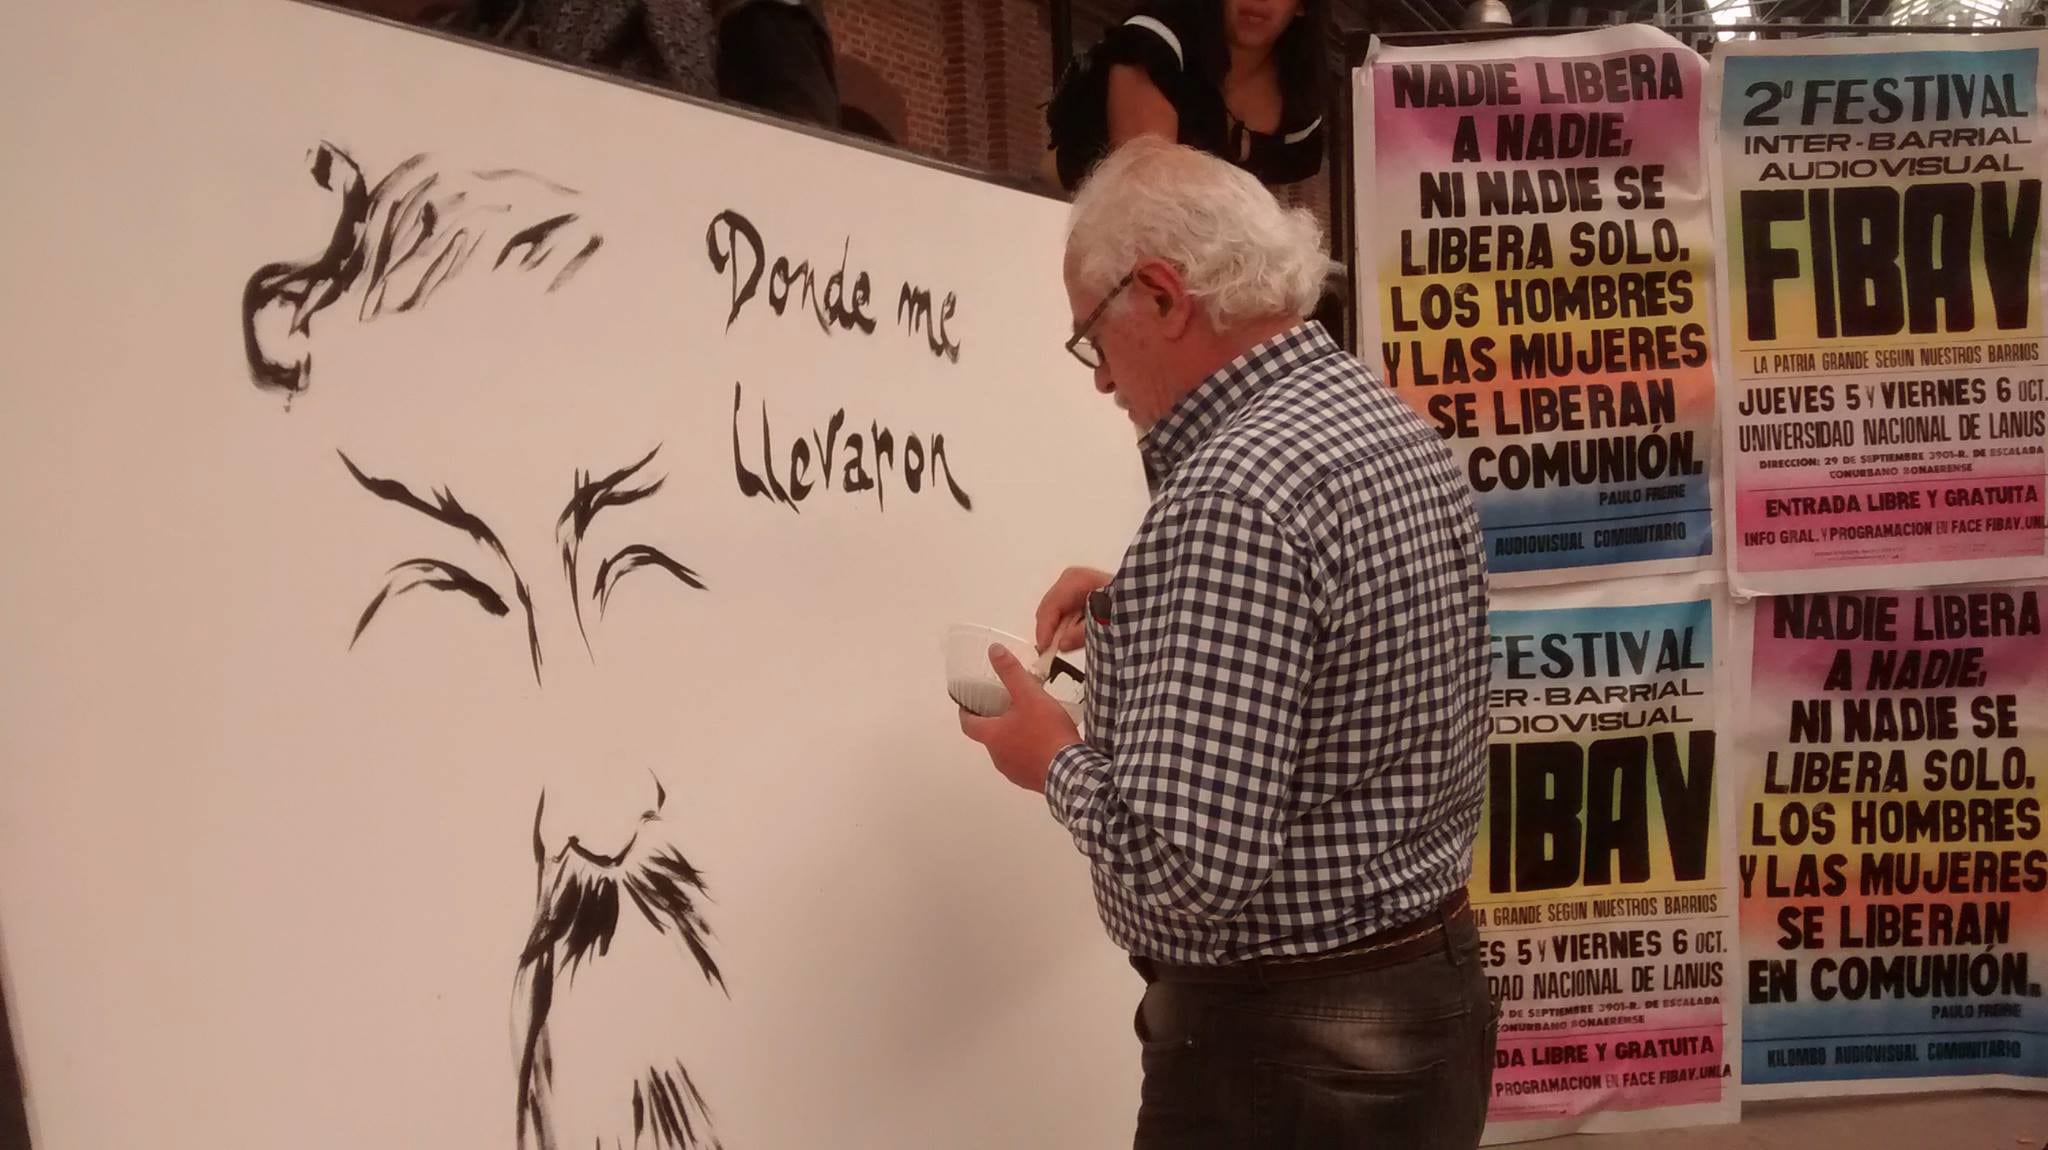 Donde me
Llevaron
NADIE LIBERA
A NADIE,
NI NADIE SE
LIBERA SOLO.
LOS HOMBRES
Y LAS MUJERES
SE LIBERAN
COMUNIÓN.
PAULO FREIRE
AUDIOVISUAL COMUNITARIO
2º FESTIVAL
INTER-BARRIAL
AUDIOVISUAL
FIBAV
LA PATRIA GRANDE SEGUN NUESTROS BARRIOS
JUEVES 5 Y VIERNES 6 OCT.
UNIVERSIDAD NACIONAL DE LANUS
DIRECCION: 29 DE SEPTIEMBRE 3901-R. DE ESCALADA
CONURBANO BONAERENSE
ENTRADA LIBRE Y GRATUITA
INFO GRAL. Y PROGRAMACION EN FACE FIBAV.UNL
FESTIVAL
ER-BARRIAL
DIOVISUAL
IBAV
IA GRANDE SEGUN NUESTROS BARRIOS
ES 5 Y VIERNES 6 OCT.
DAD NACIONAL DE LANUS
9 DE SEPTIEMBRE 3901-R. DE ESCALADA
CONURBANO BONAERENSE
DA LIBRE Y GRATUITA
PROGRAMACION EN FACE FIBAV.UNLA
NADIE LIBERA
A NADIE,
NI NADIE SE
LIBERA SOLO.
LOS HOMBRES
Y LAS MUJERES
SE LIBERAN
EN COMUNIÓN.
PAULO FREIRE
KILOMBO AUDIOVISUAL COMUNITARIO